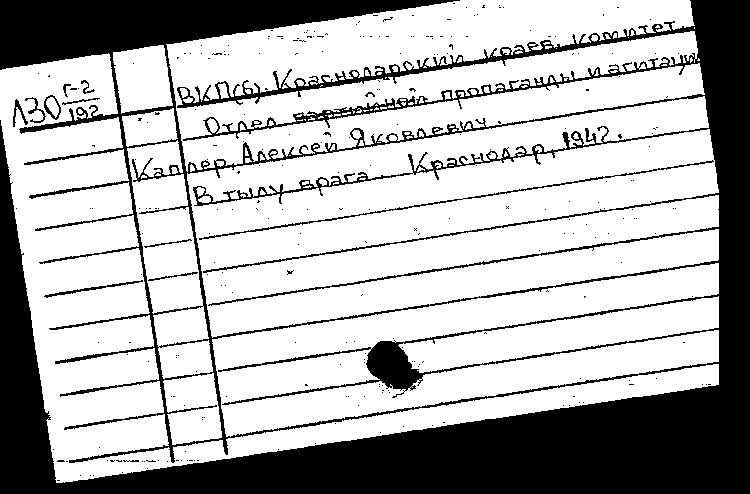 Л30 Г-2/192
ВКП(б). Краснодарский краев. комитет.
Отдел партийной пропаганды и агитации
Каплер, Алексей Яковлевич.
В тылу врага. Краснодар, 1942.